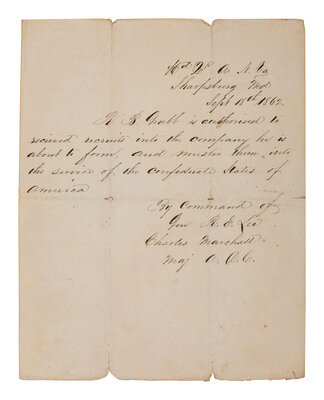 Hd Qr A. N. Va
Sharpsburg Md
Sept 18th 1862.
R. B. Grubb is authorised to
recieved recruits into the company he is
about to form, and muster them into
the service of the Confederate States of
America
By command of
Gen R. E. Lee
Charles Marshall
Maj A. D. C.